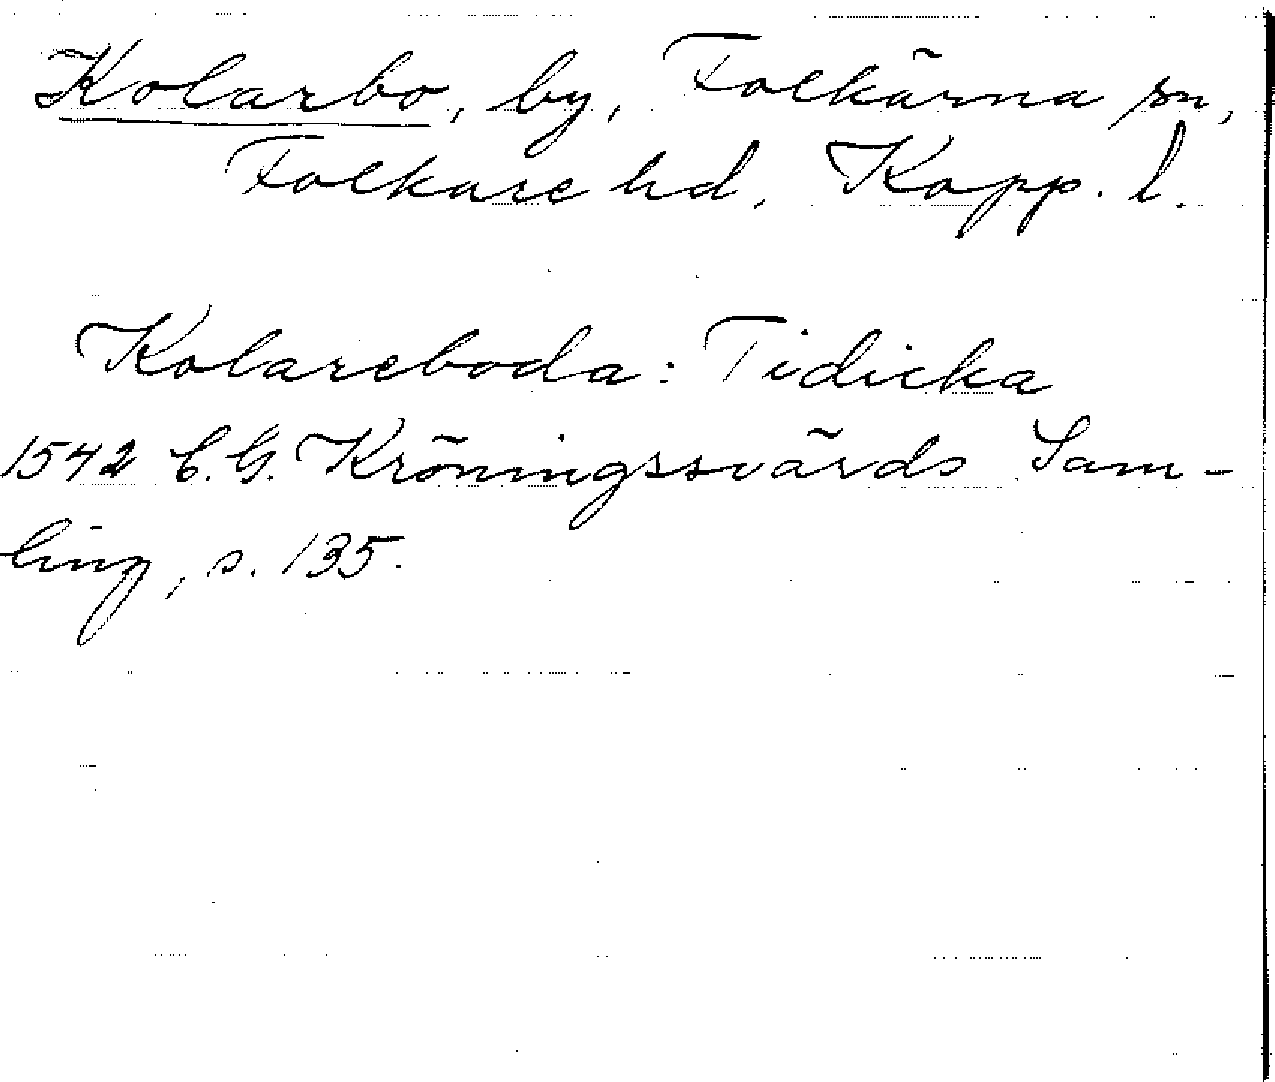 Kolarbo, by, Folkärna sn,
Folkare hd, Kopp. l.
Kolareboda: Tidicka
1542 C.G. Kröningssvärds Sam-
ling, s. 135.